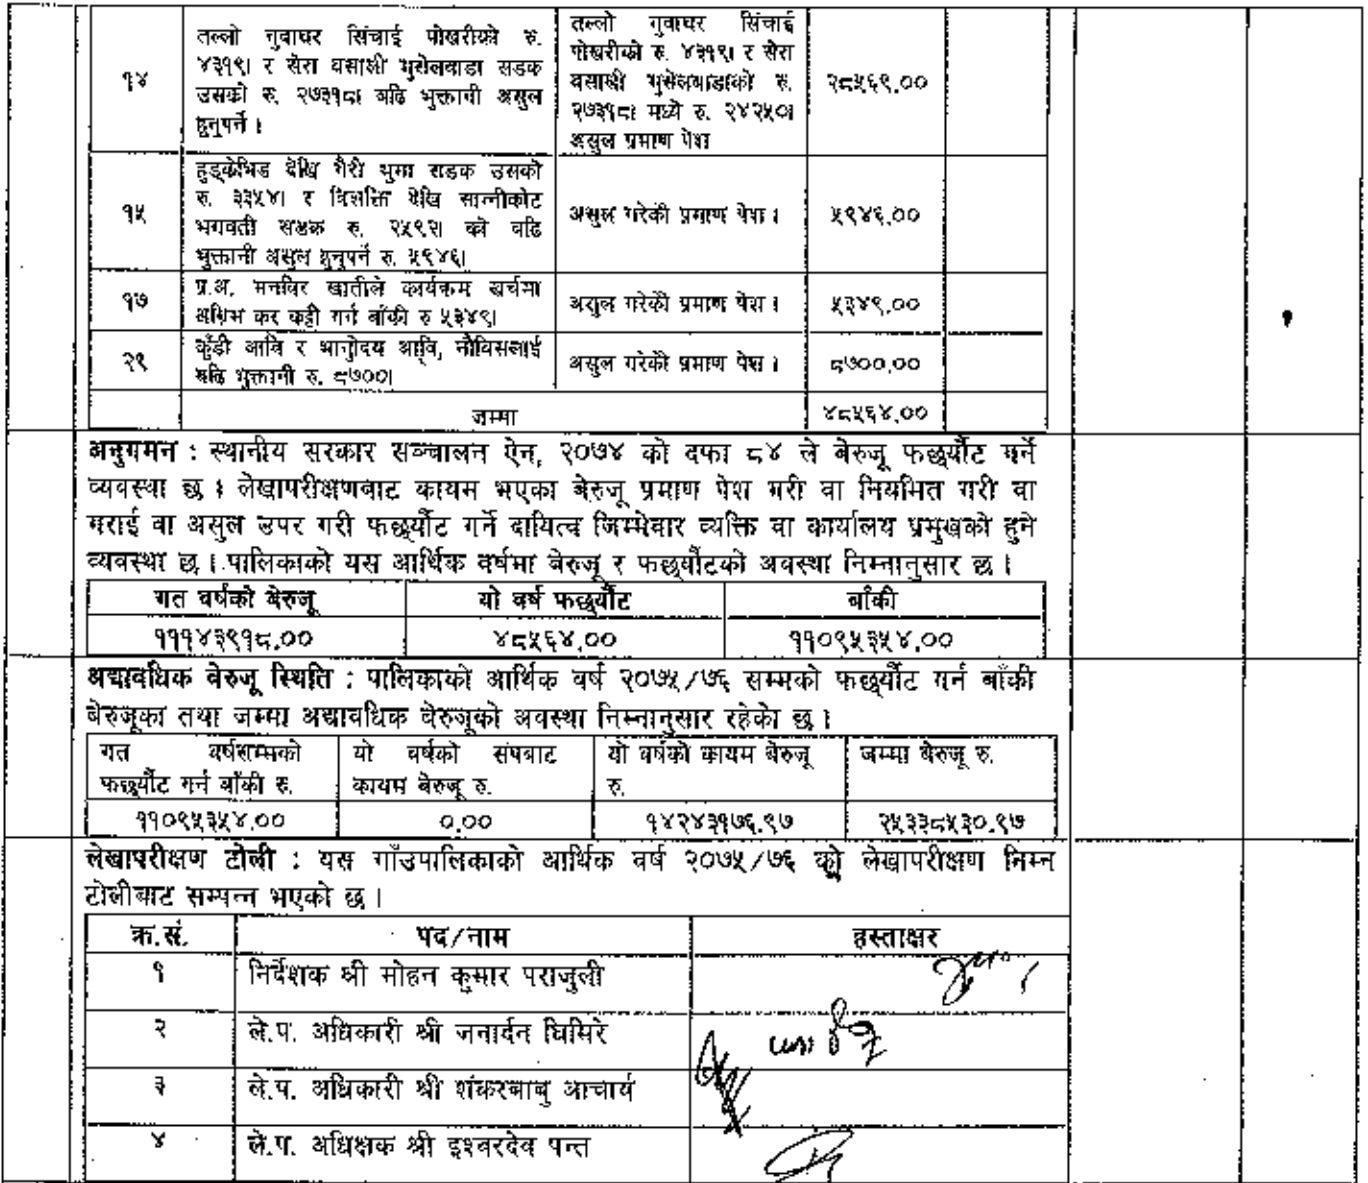 १४
तल्लो गुवाघर सिंचाई पोखरीको रु.
४३१९। र सेरा वसाक्षी भुसेलवाडा सडक
उसको रु. २७३१८। बढि भुक्तानी असुल
हुनुपर्ने ।
तल्लो गुवाघर सिंचाई
पोखरीको रु. ४३१९। र सेरा
वसाक्षी भुसेलवाडाको रु.
२७३१८। मध्ये रु. २४२५०।
असुल प्रमाण पेश
२८५६९.००
१५
देखि गैरी भुमा सडक उसको
रु. ३३५४। र देखि सान्नीकोट
भगवती सडक रु. २५९२। को बढि
भुक्तानी असुल हुनुपर्ने रु. ५९४६।
असुल गरेको प्रमाण पेश ।
५९४६.००
१७
प्र.अ. मनविर खातीले कार्यक्रम खर्चमा
अग्रिम कर कट्टी गर्न बाँकी रु ५३४९।
असुल गरेको प्रमाण पेश ।
५३४९.००
२९
कुँडी आवि र भानुोदय आवि, नौविसलाई
बढि भुक्तानी रु. ८७००।
असुल गरेको प्रमाण पेश ।
८७००.००
जम्मा
४८५६४.००
अनुगमन : स्थानीय सरकार सञ्चालन ऐन, २०७४ को दफा ८४ ले बेरुजू फछ्र्यौट गर्ने
व्यवस्था छ । लेखापरीक्षणबाट कायम भएका बेरुजू प्रमाण पेश गरी वा नियमित गरी वा
गराई वा असुल उपर गरी फछ्र्यौट गर्ने दायित्व जिम्मेवार व्यक्ति वा कार्यालय प्रमुखको हुने
व्यवस्था छ । पालिकाको यस आर्थिक वर्षमा बेरुजू र फछ्र्यौटको अवस्था निम्नानुसार छ ।
गत वर्षको बेरुजू
यो वर्ष फछ्र्यौट
बाँकी
१११४३९१८.००
४८५६४.००
११०९५३५४.००
अद्यावधिक बेरुजू स्थिति : पालिकाको आर्थिक वर्ष २०७५/७६ सम्मको फछ्र्यौट गर्न बाँकी
बेरुजूका तथा जम्मा अद्यावधिक बेरुजूको अवस्था निम्नानुसार रहेको छ ।
गत वर्षसम्मको
फछ्र्यौट गर्न बाँकी रु.
यो वर्षको संपबाट
कायम बेरुजू रु.
यो वर्षको कायम बेरुजू
रु.
जम्मा बेरुजू रु.
११०९५३५४.००
०.००
१४२४३१७६.९७
२५३३८५३०.९७
लेखापरीक्षण टोली : यस गाँउपालिकाको आर्थिक वर्ष २०७५/७६ को लेखापरीक्षण निम्न
टोलीबाट सम्पन्न भएको छ ।
क्र.सं.
पद/नाम
हस्ताक्षर
१
निर्देशक श्री मोहन कुमार पराजुली
२
ले.प. अधिकारी श्री जनार्दन घिमिरे
३
ले.प. अधिकारी श्री शंकरबाबु आचार्य
४
ले.प. अधिक्षक श्री इश्वरदेव पन्त